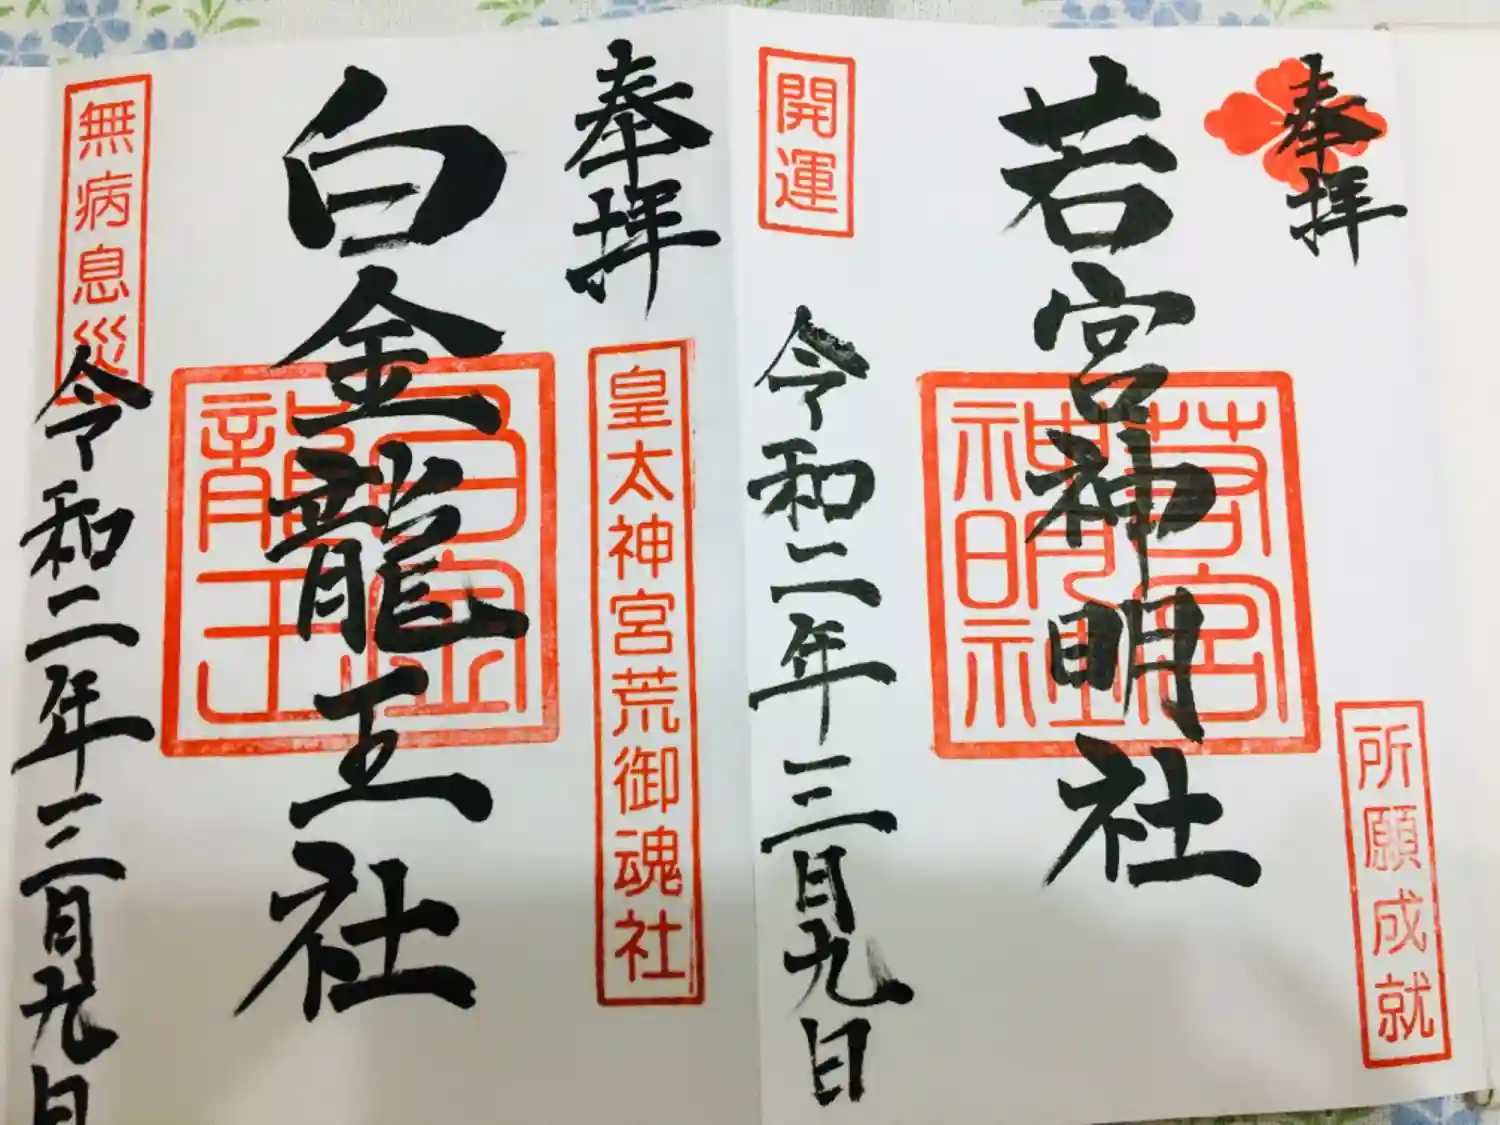 奉拝
所願成就
若宮神明社
若宮神明社
開運
令和二年三月九日
奉拝
皇太神宮荒御魂社
白金龍王社
白金龍王
無病息災
令和二年三月九日